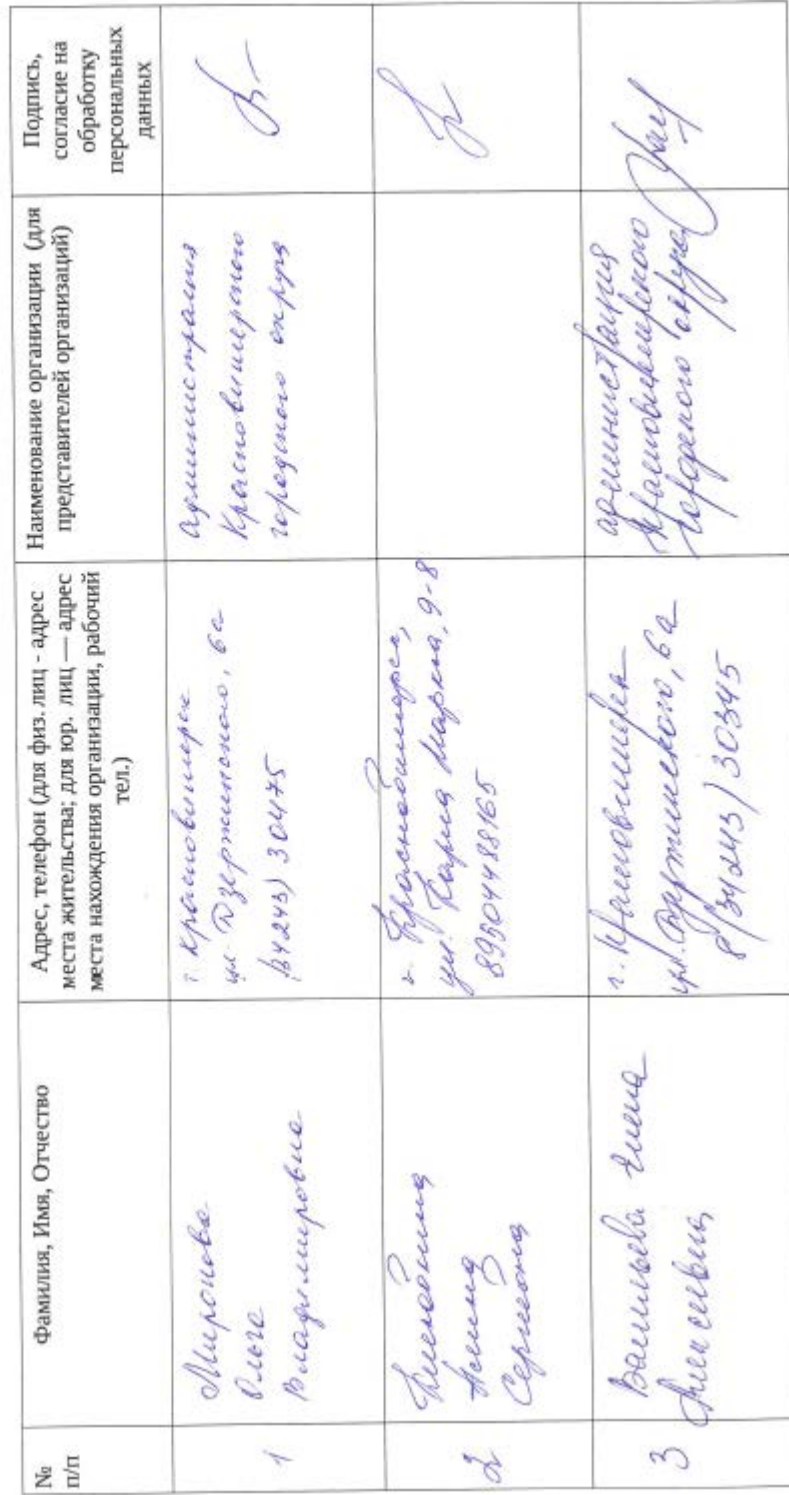 №
п/п
Фамилия, Имя, Отчество
Адрес, телефон (для физ. лиц - адрес
места жительства; для юр. лиц — адрес
места нахождения организации, рабочий
тел.)
Наименование организации (для
представителей организаций)
Подпись,
согласие на
обработку
персональных
данных
1
Миронова
Ольга
Владимировна
г. Красновишерск
ул. Дзержинского, 6а
(34243) 30475
Администрация
Красновишерского
городского округа
2
Сергеевна
г. Красновишерск,
ул. Карла Маркса, 9-8
89504488165
3
Васильева Елена
Алексеевна
г. Красновишерск
ул. Дзержинского, 6а
8(34243) 30345
администрация
Красновишерского
городского округа